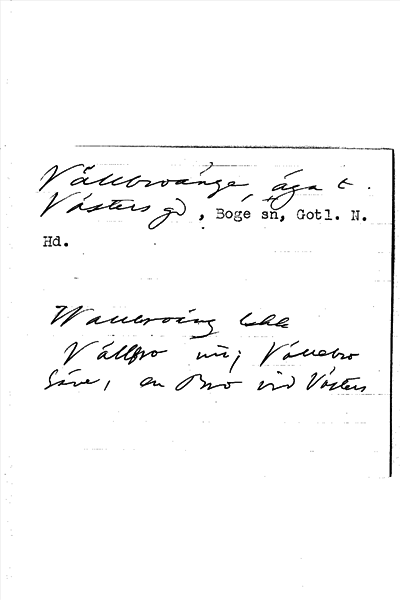 Vällbroänge, äga t.
Västers gd, Boge sn, Gotl. N.
Hd.
Wallbroäng
Vällbro Vällebro
Säve, en Bro vid Västers